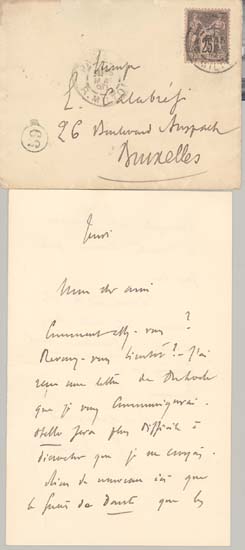 25
E. Calabrési
26 Boulevard Anspach
Bruxelles
63
Jeudi
Mon cher ami
Comment allez-vous ?
Revenez-vous bientôt ? - J'ai
reçu une lettre de
que je vous communiquerai.
Otello sera plus difficile à
que je ne croyais.
Rien de nouveau ici que
le succès de Dante que les